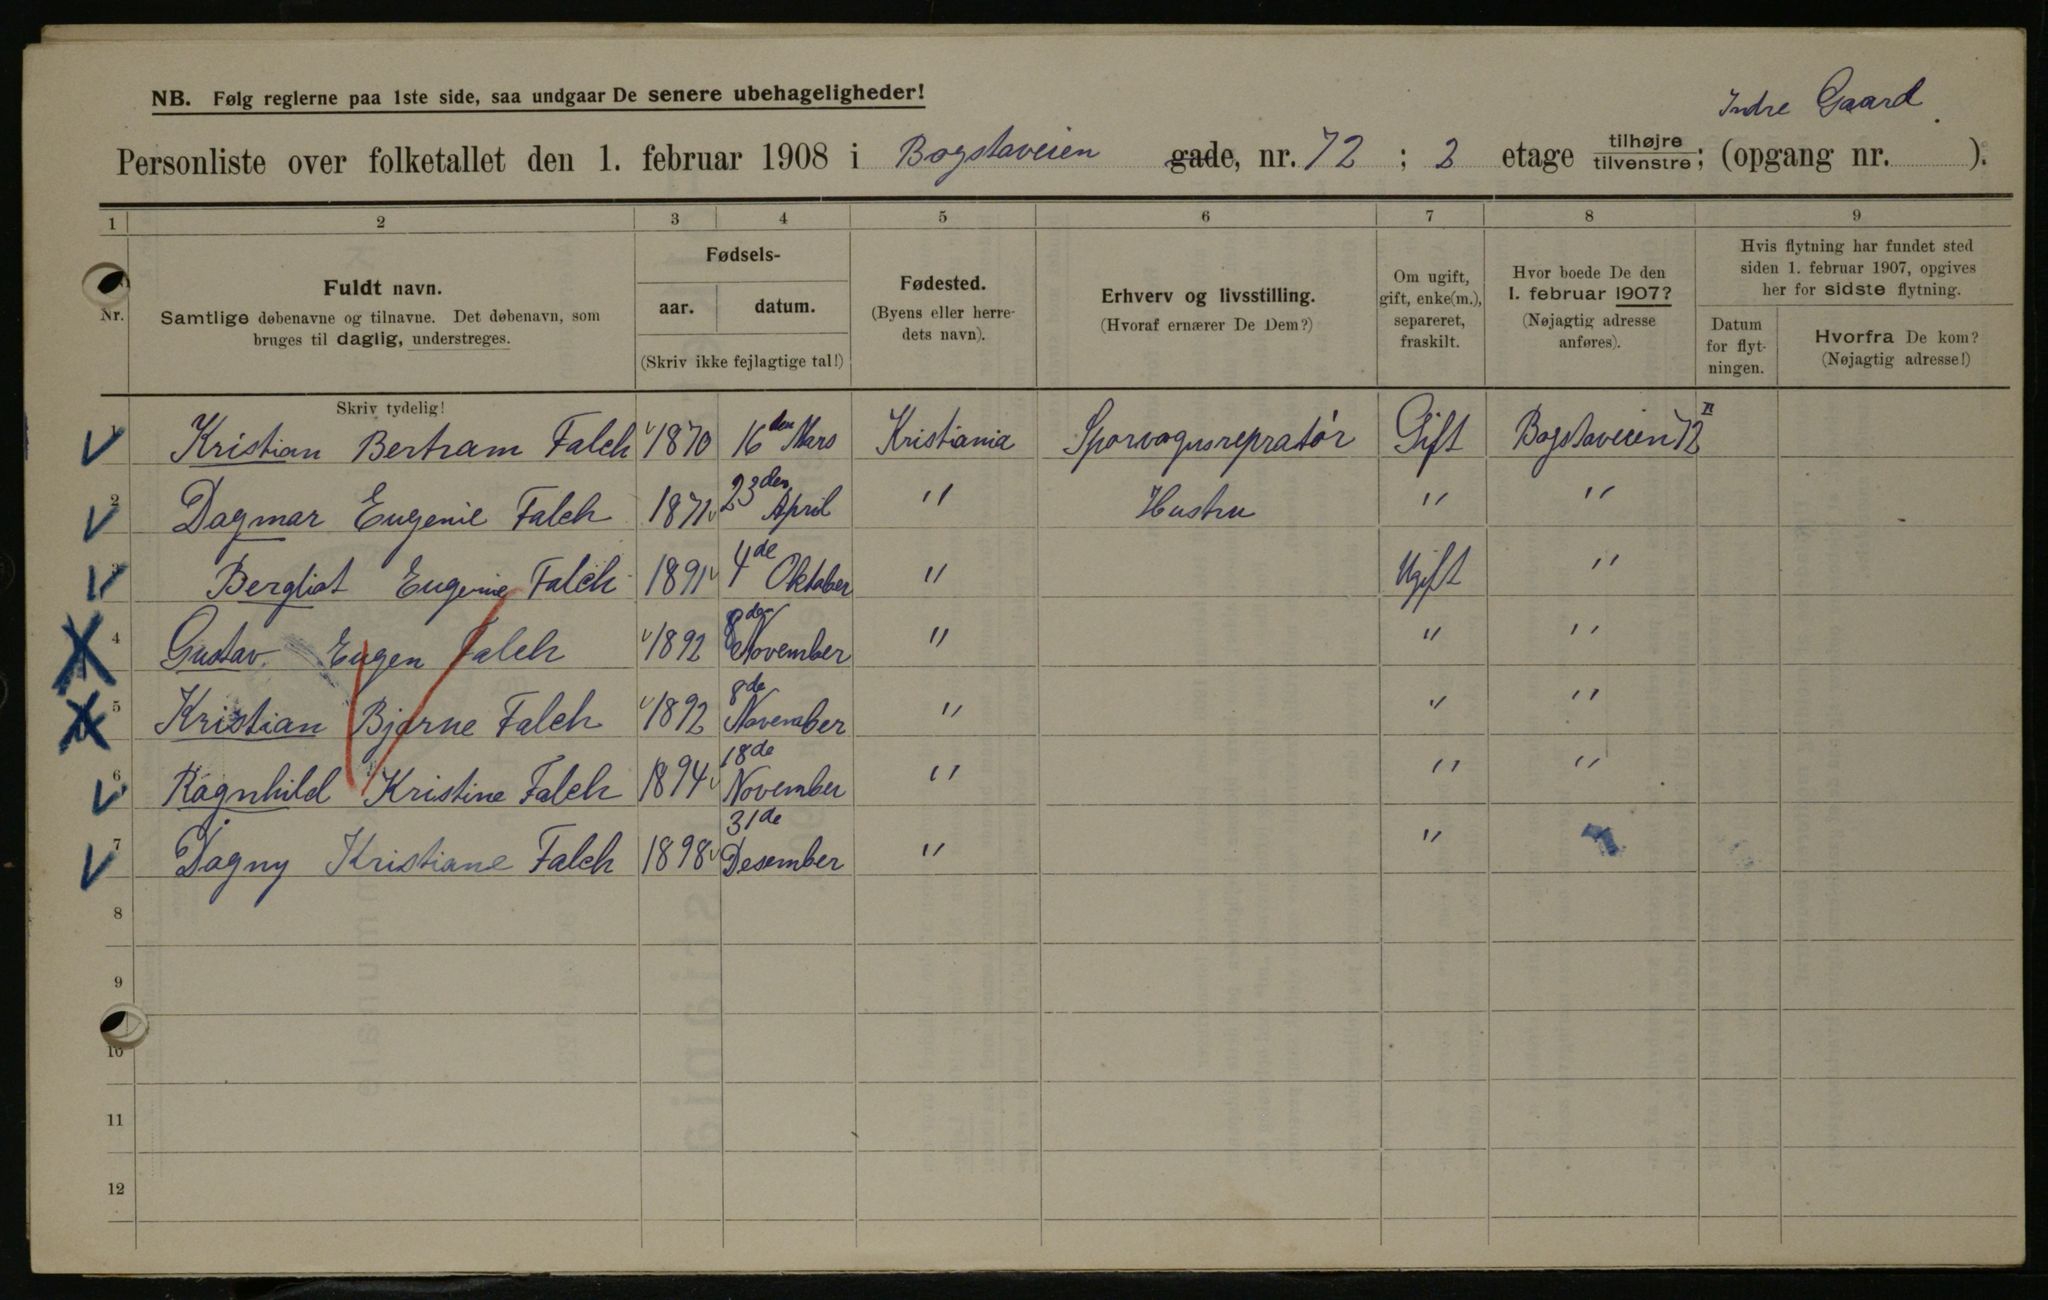 Indre Gaard
NB. Følg reglerne paa 1ste side, saa undgaar De senere ubehageligheder!
Personliste over folketallet den 1. februar 1908 i Bogstaveien gade, nr. 72 ; 2 etage tilhøjre tilvenstre; (opgang nr. ).
1 2 3 4 5 6 7 8 9
Nr.
Fuldt navn.
Samtlige døbenavne og tilnavne. Det døbenavn, som
bruges til daglig, understreges.
Fødsels-
aar. datum.
(Skriv ikke fejlagtige tal!)
Fødested.
(Byens eller herre-
dets navn).
Erhverv og livsstilling.
(Hvoraf ernærer De Dem?)
Om ugift,
gift, enke(m.),
separeret,
fraskilt.
Hvor boede De den
1. februar 1907?
(Nøjagtig adresse
anføres).
Hvis flytning har fundet sted
siden 1. februar 1907, opgives
her for sidste flytning.
Datum
for flyt-
ningen.
Hvorfra De kom?
(Nøjagtig adresse!)
Skriv tydelig!
1 Kristian Bertram Falch 1870 16den Mars Kristiania Sporvognsrepratør Gift Bogstaveien 72 II
2 Dagmar Eugenie Falch 1871 23den April " Hustru " "
3 Bergliot Eugenie Falch 1891 4de Oktober " Ugift "
4 Gustav Eugen Falch 1892 8de November " " "
5 Kristian Bjarne Falch 1892 8de November " " "
6 Ragnhild Kristine Falch 1894 18de November " " "
7 Dagny Kristiane Falch 1898 31de Desember " "
8
9
10
11
12